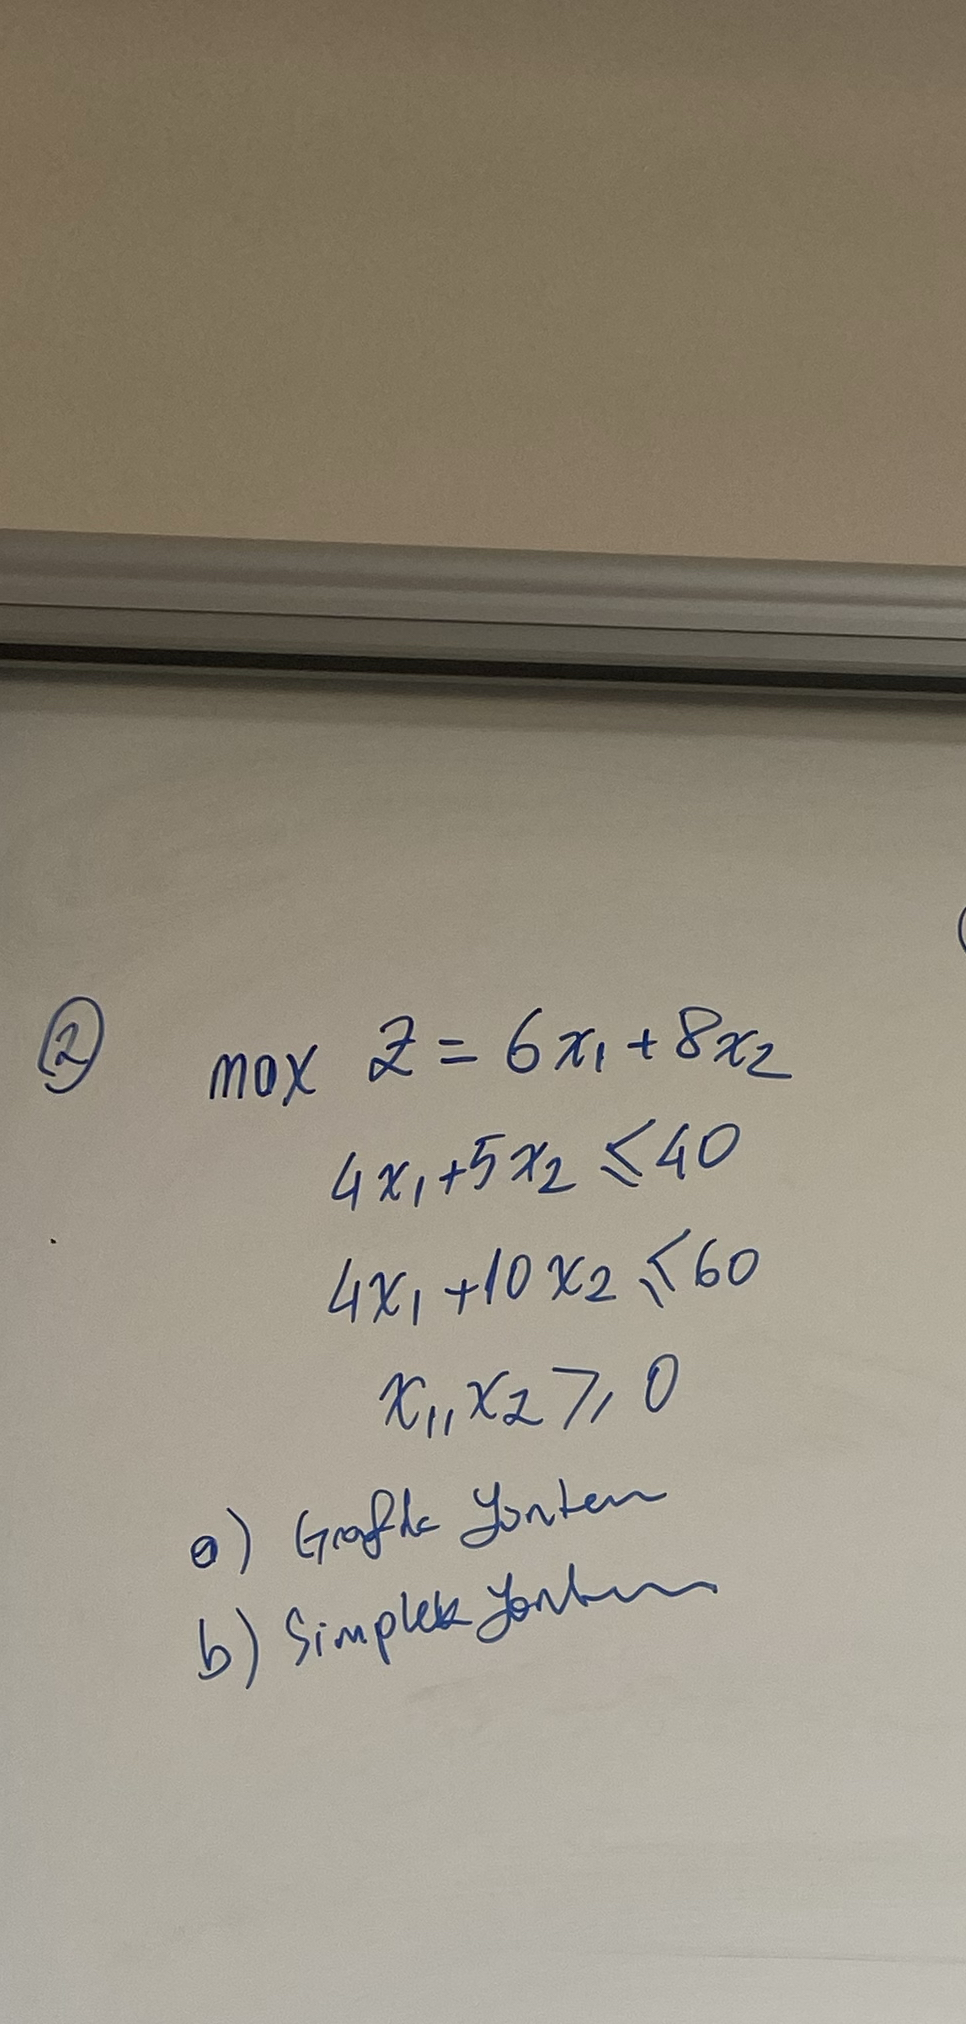 2
max Z = 6x₁ + 8x₂
4x₁ + 5x₂ ≤ 40
4x₁ + 10x₂ ≤ 60
x₁, x₂ ≥ 0
a) Grafik Yöntem
b) Simpleks Yöntem